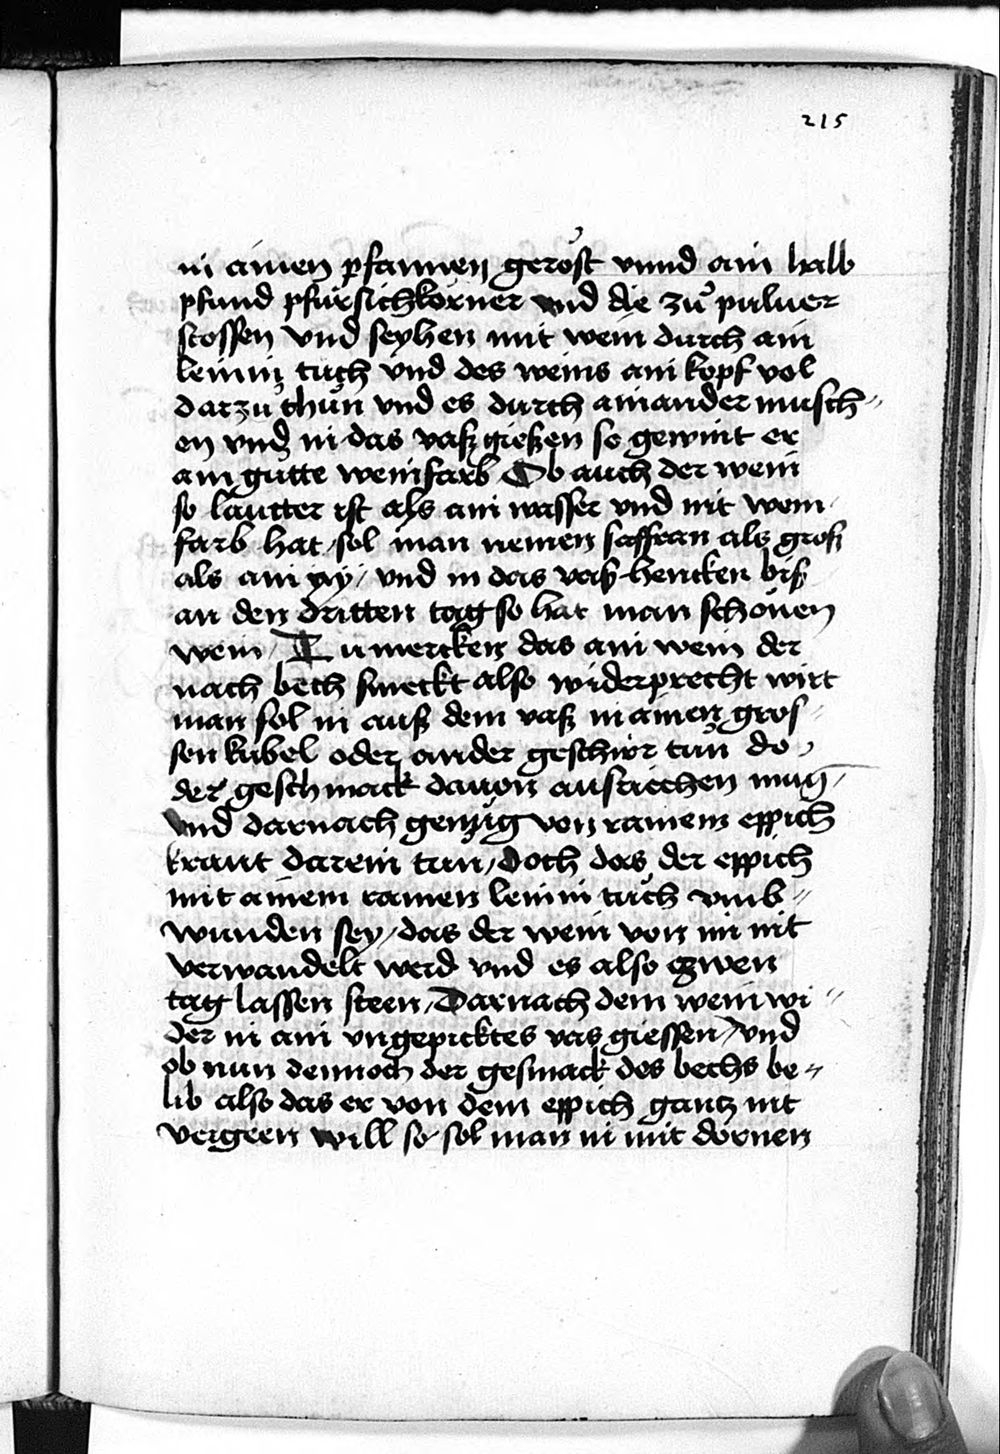 215
in ainen pfannen geröst vnnd ain halb
pfund pfürsichkörner vnd die zů puluer
stossen vnd seyhen mit wein durch ain
leinin tuch vnd des weins ain kopf vol
darzu thun vnd es durch ainander musch〃
en vnd in das vaß gießen so gewint er
ain gutte weinfarb Ob auch der wein
so lautter ist als ain wasser vnd nit wein
farb hat / sol man nemen saffran als groß
als ain ay / vnd in das vaß hencken biß
an den dritten tag so hat man schönen
wein / Zu mercken das ain wein der
nach bech smeckt also widerprecht wirt
man sol in auß dem vaß in ainen gros〃
sen kubel oder ander geschirr tun do
der geschmack dauon ausriechen mug /
vnd darnach genug von rainem eppich
kraut darein tun / doch das der eppich
mit ainem rainen leinin tuch vmb〃
wunden sey / das der wein von im nit
verwandelt werd vnd es also zwen
tag lassen steen / Darnach dem wein wi〃
der in ain vngepicktes vas giessen / vnd
ob nun dennoch der gesmack des bechs be〃
lib also das er von dem eppich gantz nit
vergeen will so sol man in mit dornen